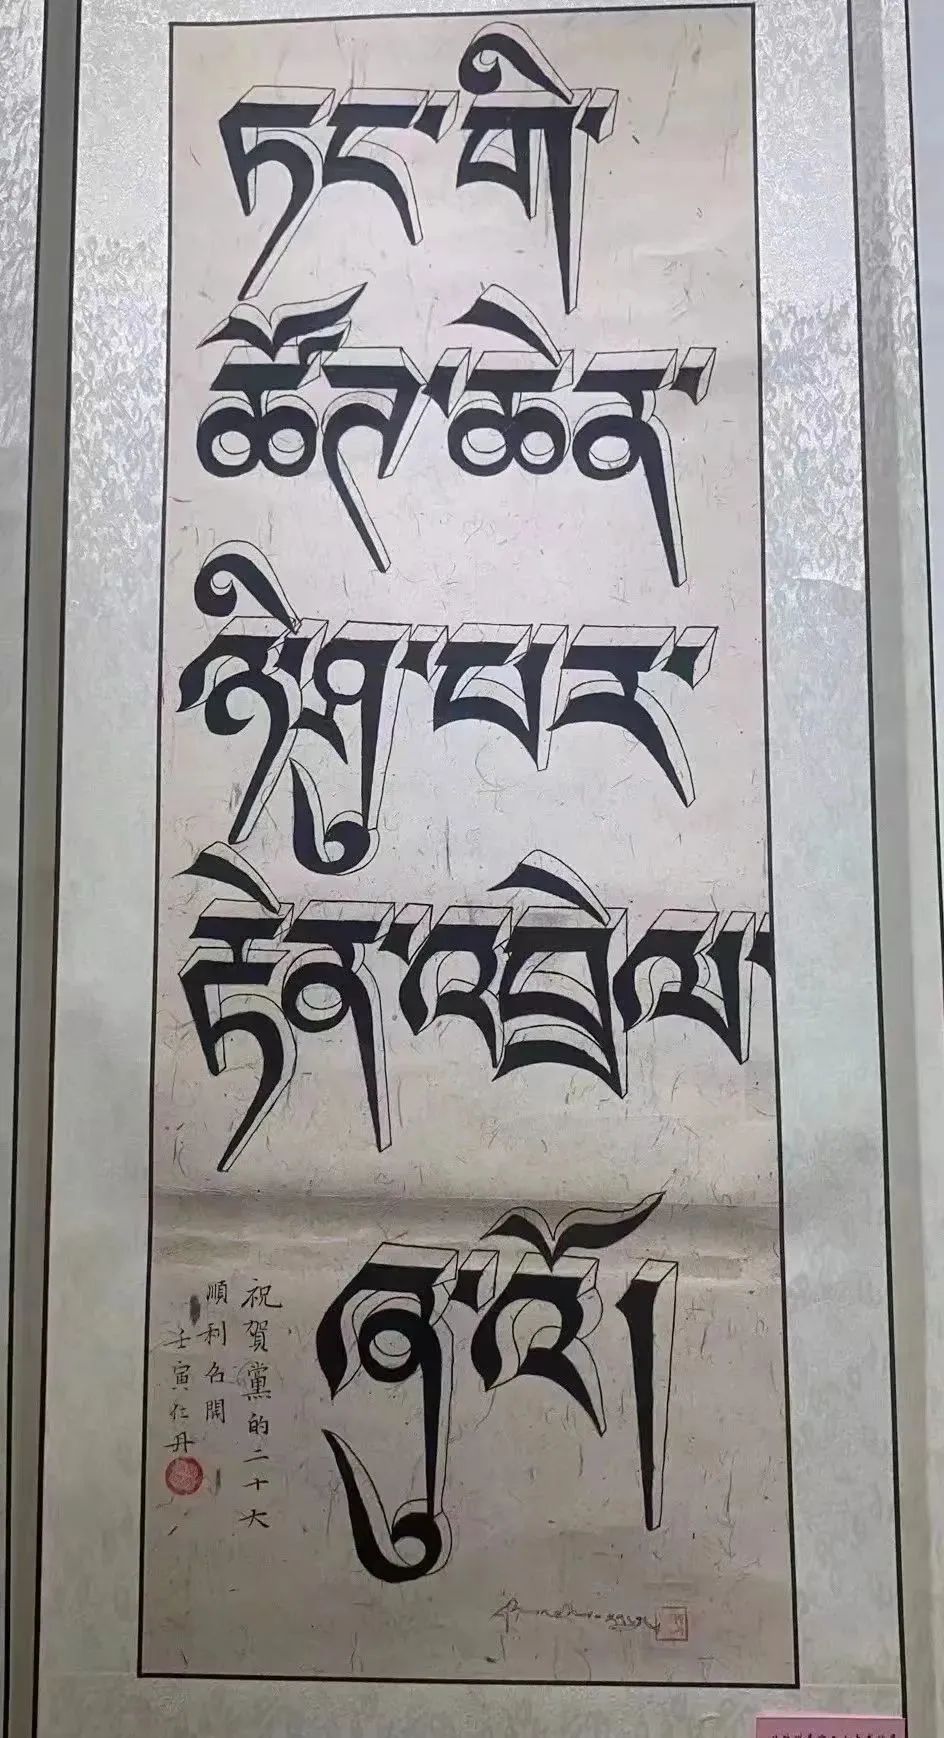 ཏང་གི་
ཚོཊ་ཆེན་
ཉི་ཤུ་པར་
རྟེན་འབྲེལ་
ཞུ་འོ།
祝賀黨的二十大
順利召開
壬寅仁丹